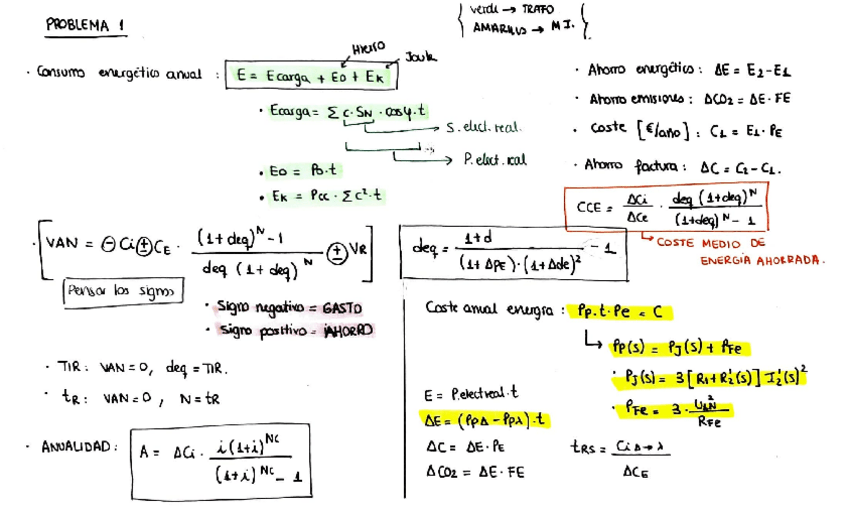 PROBLEMA 1
verde → TRAFO
AMARILLO → M.I.
Hierro
Joule
· Consumo energético anual : E = Ecarga + E0 + Ek
· Ecarga = Σ C · SN · cosφ · t
S. elect. real.
P. elect. real
· E0 = P0 · t
· Ek = Pcc · Σ c² · t
· Ahorro energético : ΔE = E2 - E1
· Ahorro emisiones : ΔCO2 = ΔE · FE
· Coste [€/año] : C1 = E1 · PE
· Ahorro factura : ΔC = C2 - C1.
CCE = ΔCi / ΔCe · deq (1+deq)^N / (1+deq)^N - 1
↳ COSTE MEDIO DE
ENERGÍA AHORRADA.
· [VAN = ⊖ Ci ⊕ CE · (1+deq)^N - 1 / deq (1+deq)^N ⊕ VR]
Pensar los signos
· Signo negativo = GASTO
· Signo positivo = ¡AHORRO
· TIR : VAN = 0, deq = TIR.
· tR : VAN = 0, N = tR
· ANUALIDAD : A = ΔCi · i(1+i)^NC / (1+i)^NC - 1
deq = 1+d / (1+ΔPE) · (1+Δde)² - 1
Coste anual energía : Pp · t · Pe = C
↳ Pp(s) = PJ(s) + PFe
· PJ(s) = 3 [R1 + R2'(s)] I2'(s)²
· PFe = 3 · U1N² / RFe
E = P.elect real · t
ΔE = (PpΔ - Ppλ) · t
ΔC = ΔE · PE
ΔCO2 = ΔE · FE
tRS = Ci Δ→λ / ΔCE